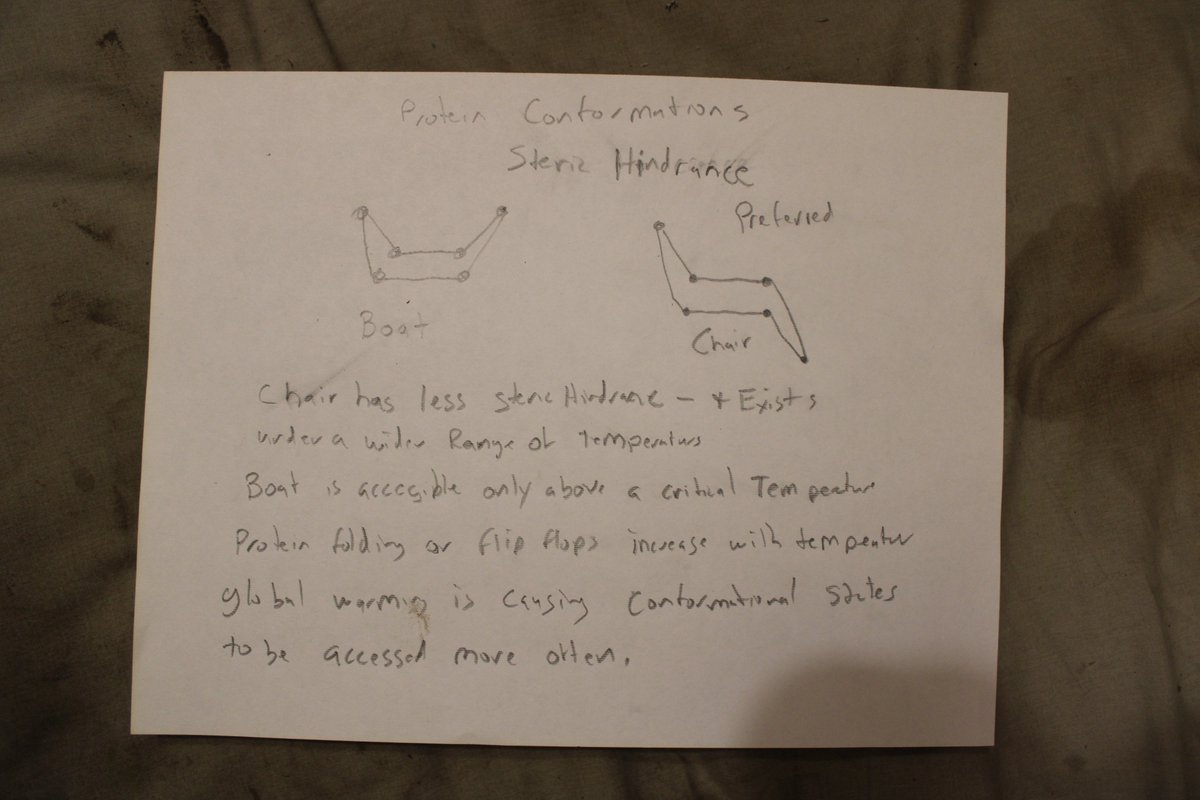 Protein Conformations
Steric Hindrance
Preferred
Boat
Chair
Chair has less steric Hindrance - + Exists
under a wider Range of temperatures
Boat is accessible only above a critical Temperature
Protein folding or flip flops increase with temperatur
global warming is causing Conformational States
to be accessed more often.